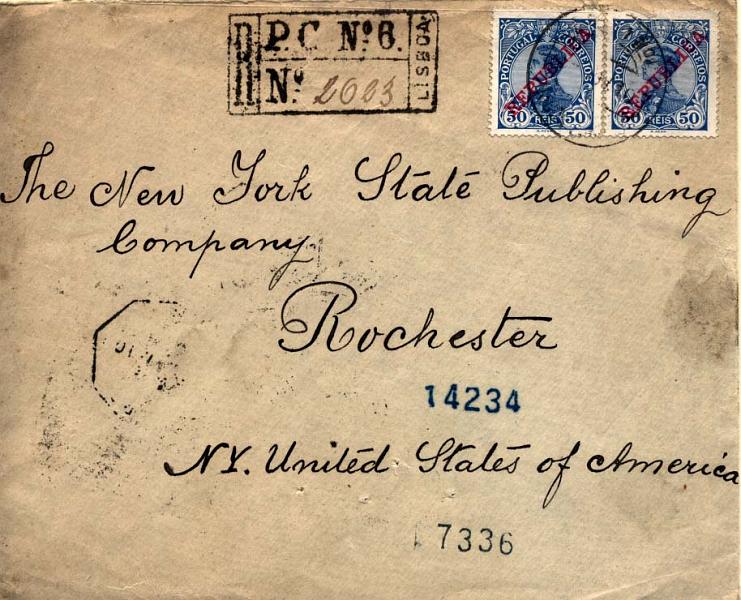 R P.C. Nº 6. LISBOA
Nº 2023
PORTUGAL CORREIOS
REPUBLICA
50 REIS 50
PORTUGAL CORREIOS
REPUBLICA
50 REIS 50
The New York State Publishing
Company
Rochester
14234
N.Y. United States of America
7336